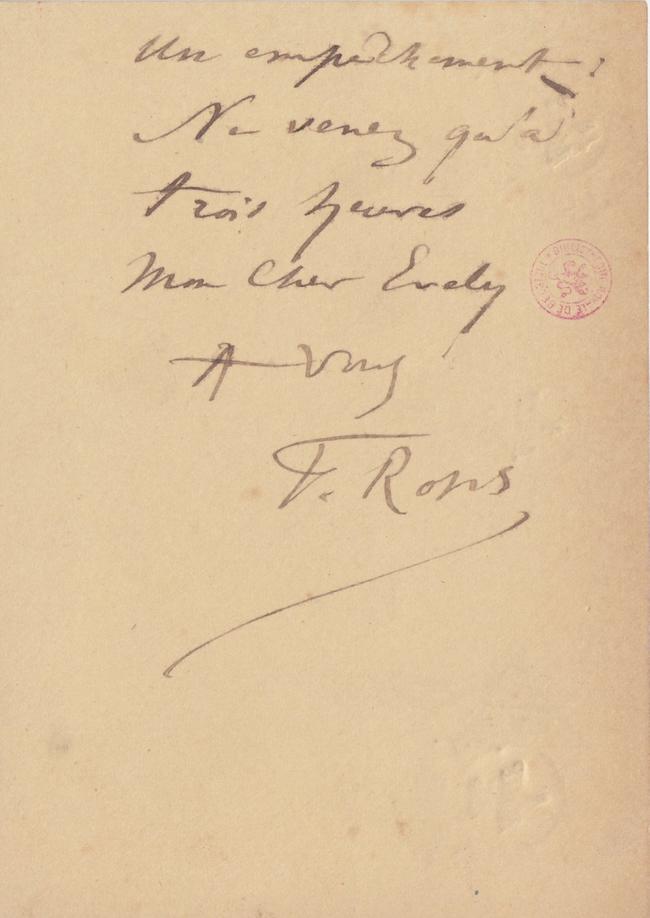 Un empêchement :
Ne venez qu'à
trois heures
Mon Cher Evely
A vous
F. Rops